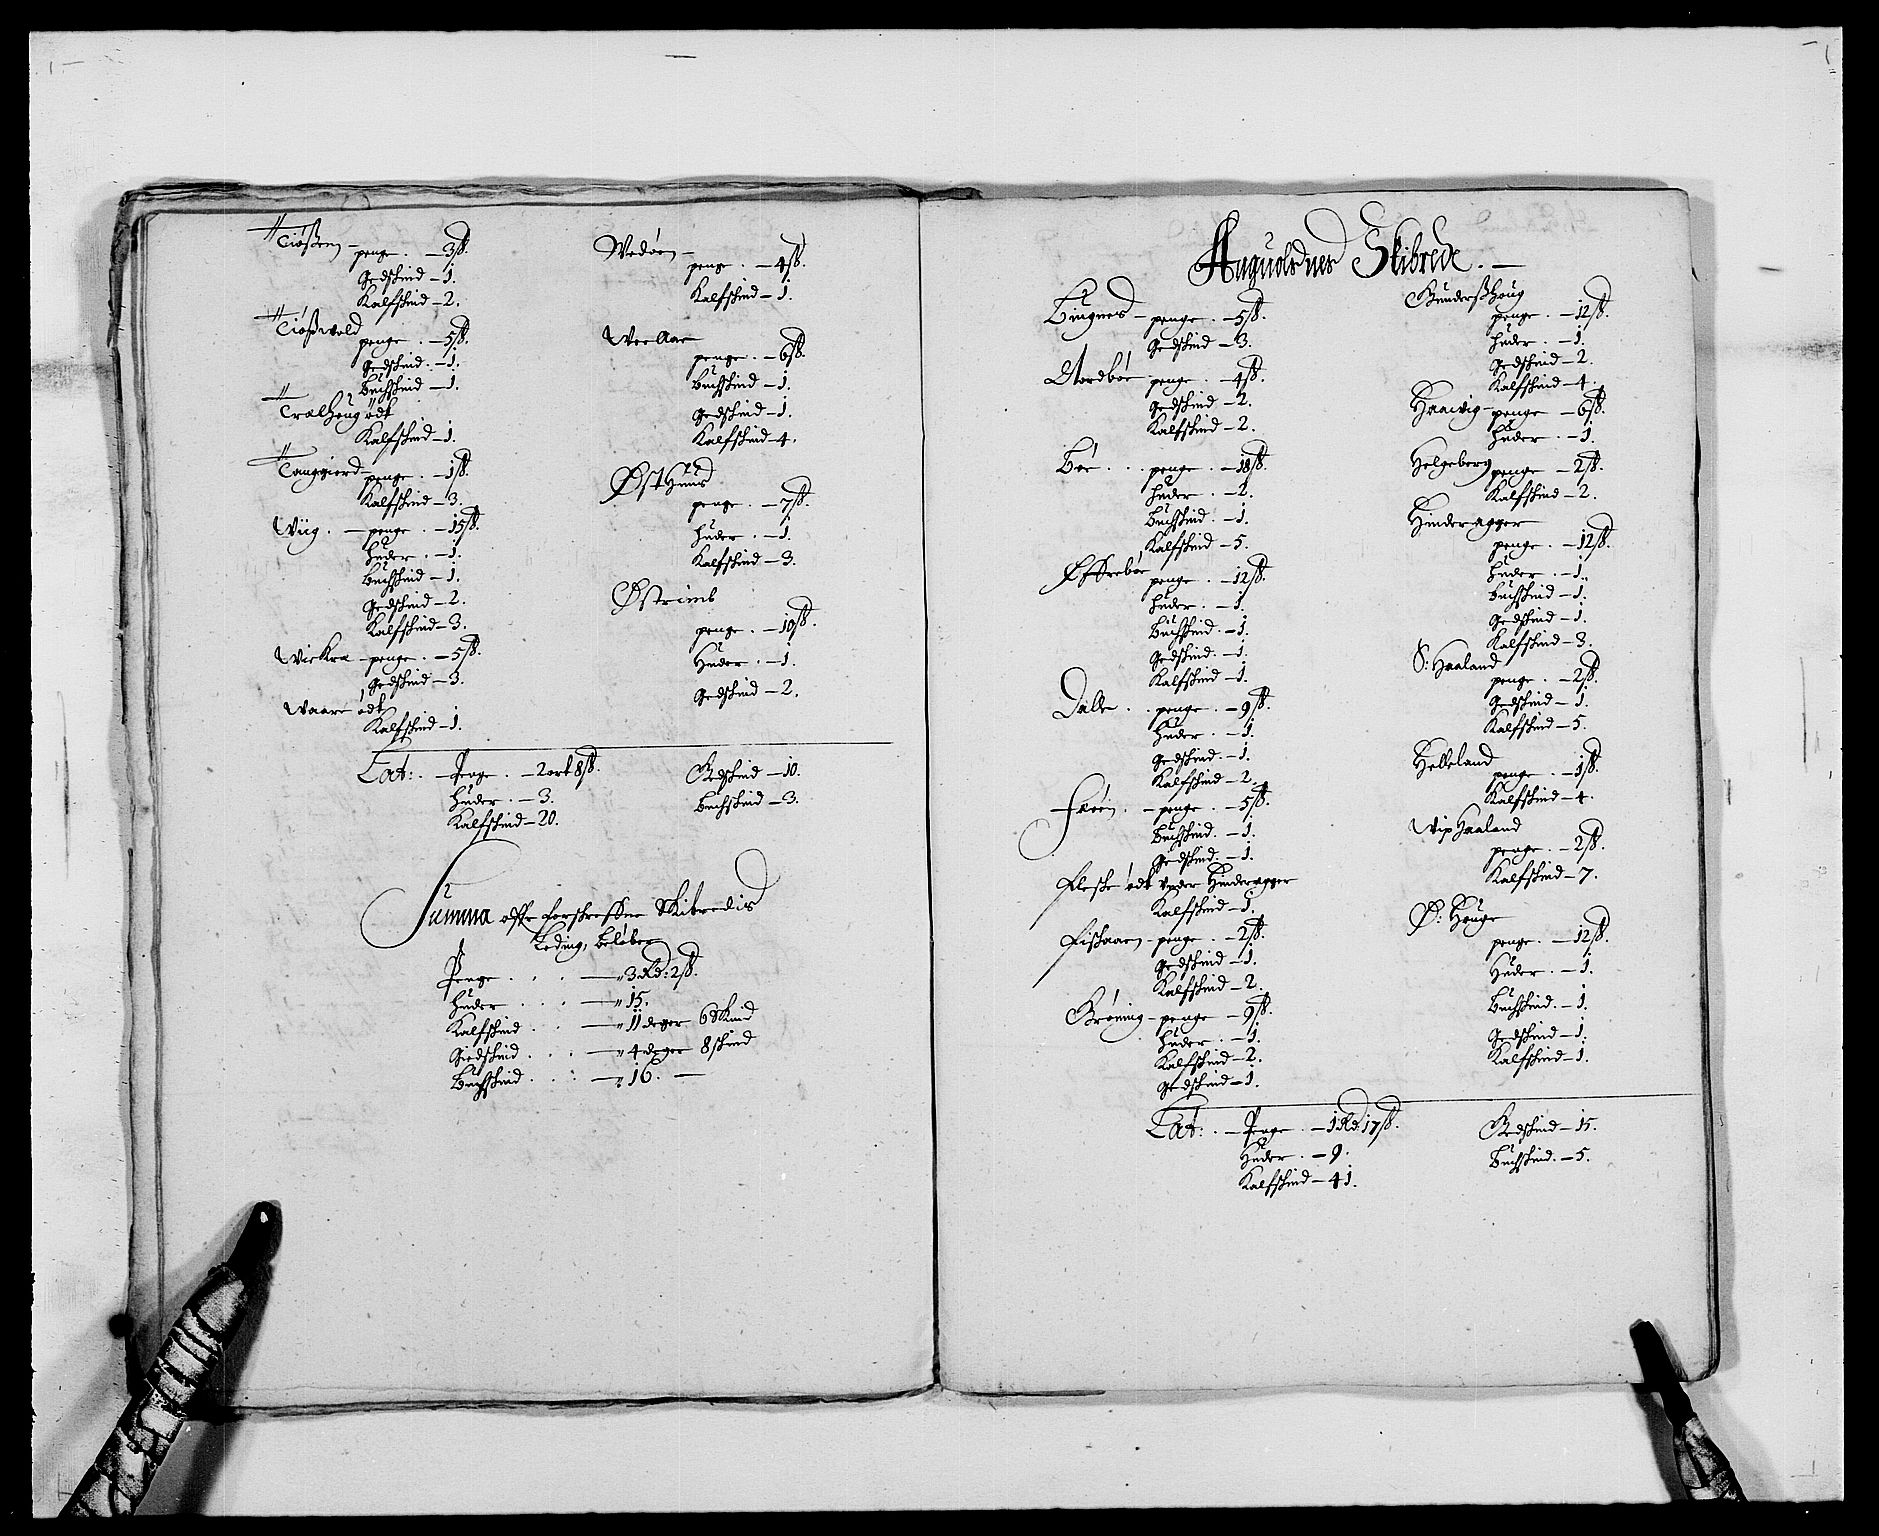 Tiøßem – penge . – 3 ß.
Gedskind – 1.
Kalfskind – 2.
Tiøßwold
penge . – 5 ß.
Gedskind – 1.
Buchskind – 1.
Tralhoug ödt
Kalfskind – 1.
Tanggierd – penge . – 1 ß.
Kalfskind – 3.
Wiig . – penge . – 15 ß.
Huder . – 1.
Buchskind – 1.
Gedskind – 2.
Kalfskind – 3.
Wickra – penge . – 5 ß.
Gedskind – 3.
Waare ödt
Kalfskind – 1.
Wedøen –
penge . – 4 ß.
Kalfskind – 1.
Wee Aae
penge . – 6 ß.
Buchskind – 1.
Gedskind – 1.
Kalfskind – 4.
Øst Huus
penge . – 7 ß.
Huder . – 1.
Kalfskind – 3.
Østeimb
penge . – 10 ß.
Huder . – 1.
Gedskind – 2.
Lat: . – Penge . – 2 ort 8 ß.
Huder . – 3.
Kalfskind – 20.
Gedskind – 10.
Buchskind – 3.
Summa offr forskreffne Skibredis
Leding, beløber
Penge . . . – 3 Rd: 2 ß.
Huder . . . – 15.
Kalfskind . . – 11 deger 6 Skind
Giedskind . . . – 4 deger 8 skind
Buchskind . . . – 16. –
Auguoldnes Skibrede . –
Bugnes – penge . – 5 ß.
Gedskind – 3.
Nordbøe penge . – 4 ß.
Gedskind – 2.
Kalfskind – 2.
Bøe . . . penge . – 18 ß.
Huder . – 2.
Buchskind . – 1.
Kalfskind – 5.
Effrebøe
penge . – 12 ß.
Huder . – 1.
Buchskind . – 1.
Gedskind . – 1.
Kalfskind – 1.
Dalle . . penge . – 9 ß.
Huder . – 1.
Gedskind – 1.
Kalfskind – 2.
Feøen . – penge . – 5 ß.
Buchskind . – 1.
Gedskind . – 1.
Fleske ödt under Hinderagger
Kalfskind – 1.
Fiskaaen – penge . – 2 ß.
Gedskind – 1.
Kalfskind – 2.
Grøning – penge – 9 ß.
Huder . – 1.
Kalfskind – 2.
Gedskind – 1.
Gundersßhoug
penge . – 12 ß.
Huder . – 1.
Gedskind – 2.
Kalfskind – 4.
Haawig – penge – 6 ß.
Huder . – 1.
Helgeberg penge – 2 ß.
Kalfskind – 2.
Hinderagger
penge . – 12 ß.
Huder . – 1.
Buchskind – 1.
Gedskind – 1.
Kalfskind – 3.
S: Haaland
penge . – 2 ß.
Gedskind – 1.
Kalfskind – 5.
Helleland
penge . – 1 ß.
Kalfskind – 4.
Wip Haaland
penge . – 2 ß.
Kalfskind – 7.
Ø: Houge
penge . – 12 ß.
Huder . – 1.
Buchskind . – 1.
Gedskind – 1.
Kalfskind – 1.
Lat: . – Penge . – 1 Rd 17 ß.
Huder . – 9.
Kalfskind – 41.
Gedskind – 15.
Buchskind . – 5.